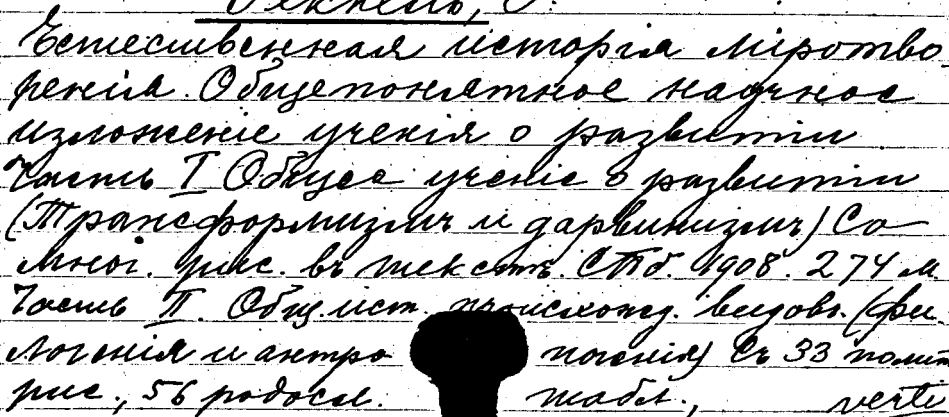 Геккель, Э.
Естественная исторія міротво
ренія. Общепонятное научное
изложеніе ученія о развитіи
Часть I Общее ученіе о развитіи
(Трансформизмъ и дарвинизмъ) Со
мног. рис. въ текстѣ. СПб. 1908. 274
Часть II. Общ. ист. происхожд. видовъ. (фи
логенія и антро погенія) Съ 33 полит
рис., 56 родосл. табл., verte